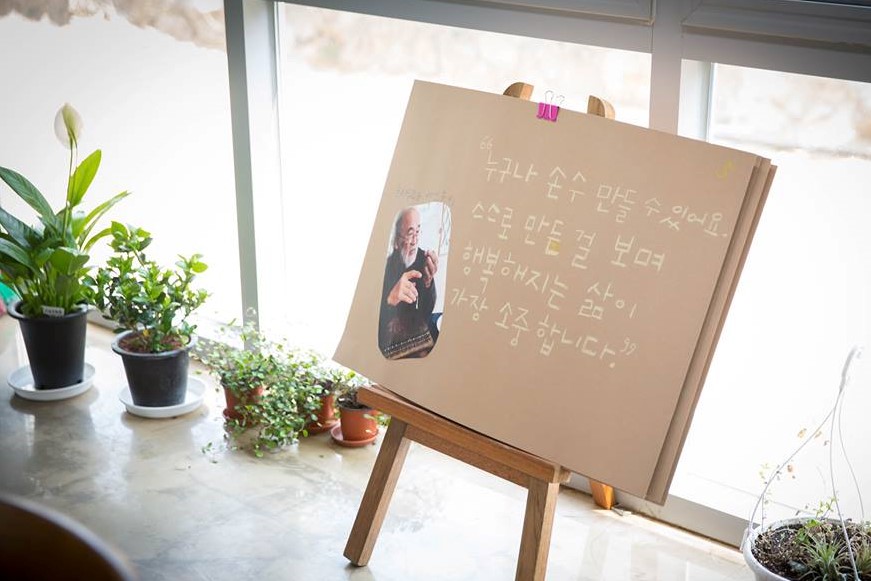 “누구나 손수 만들 수 있어요.
스스로 만든 걸 보며
행복해지는 삶이
가장 소중합니다.”